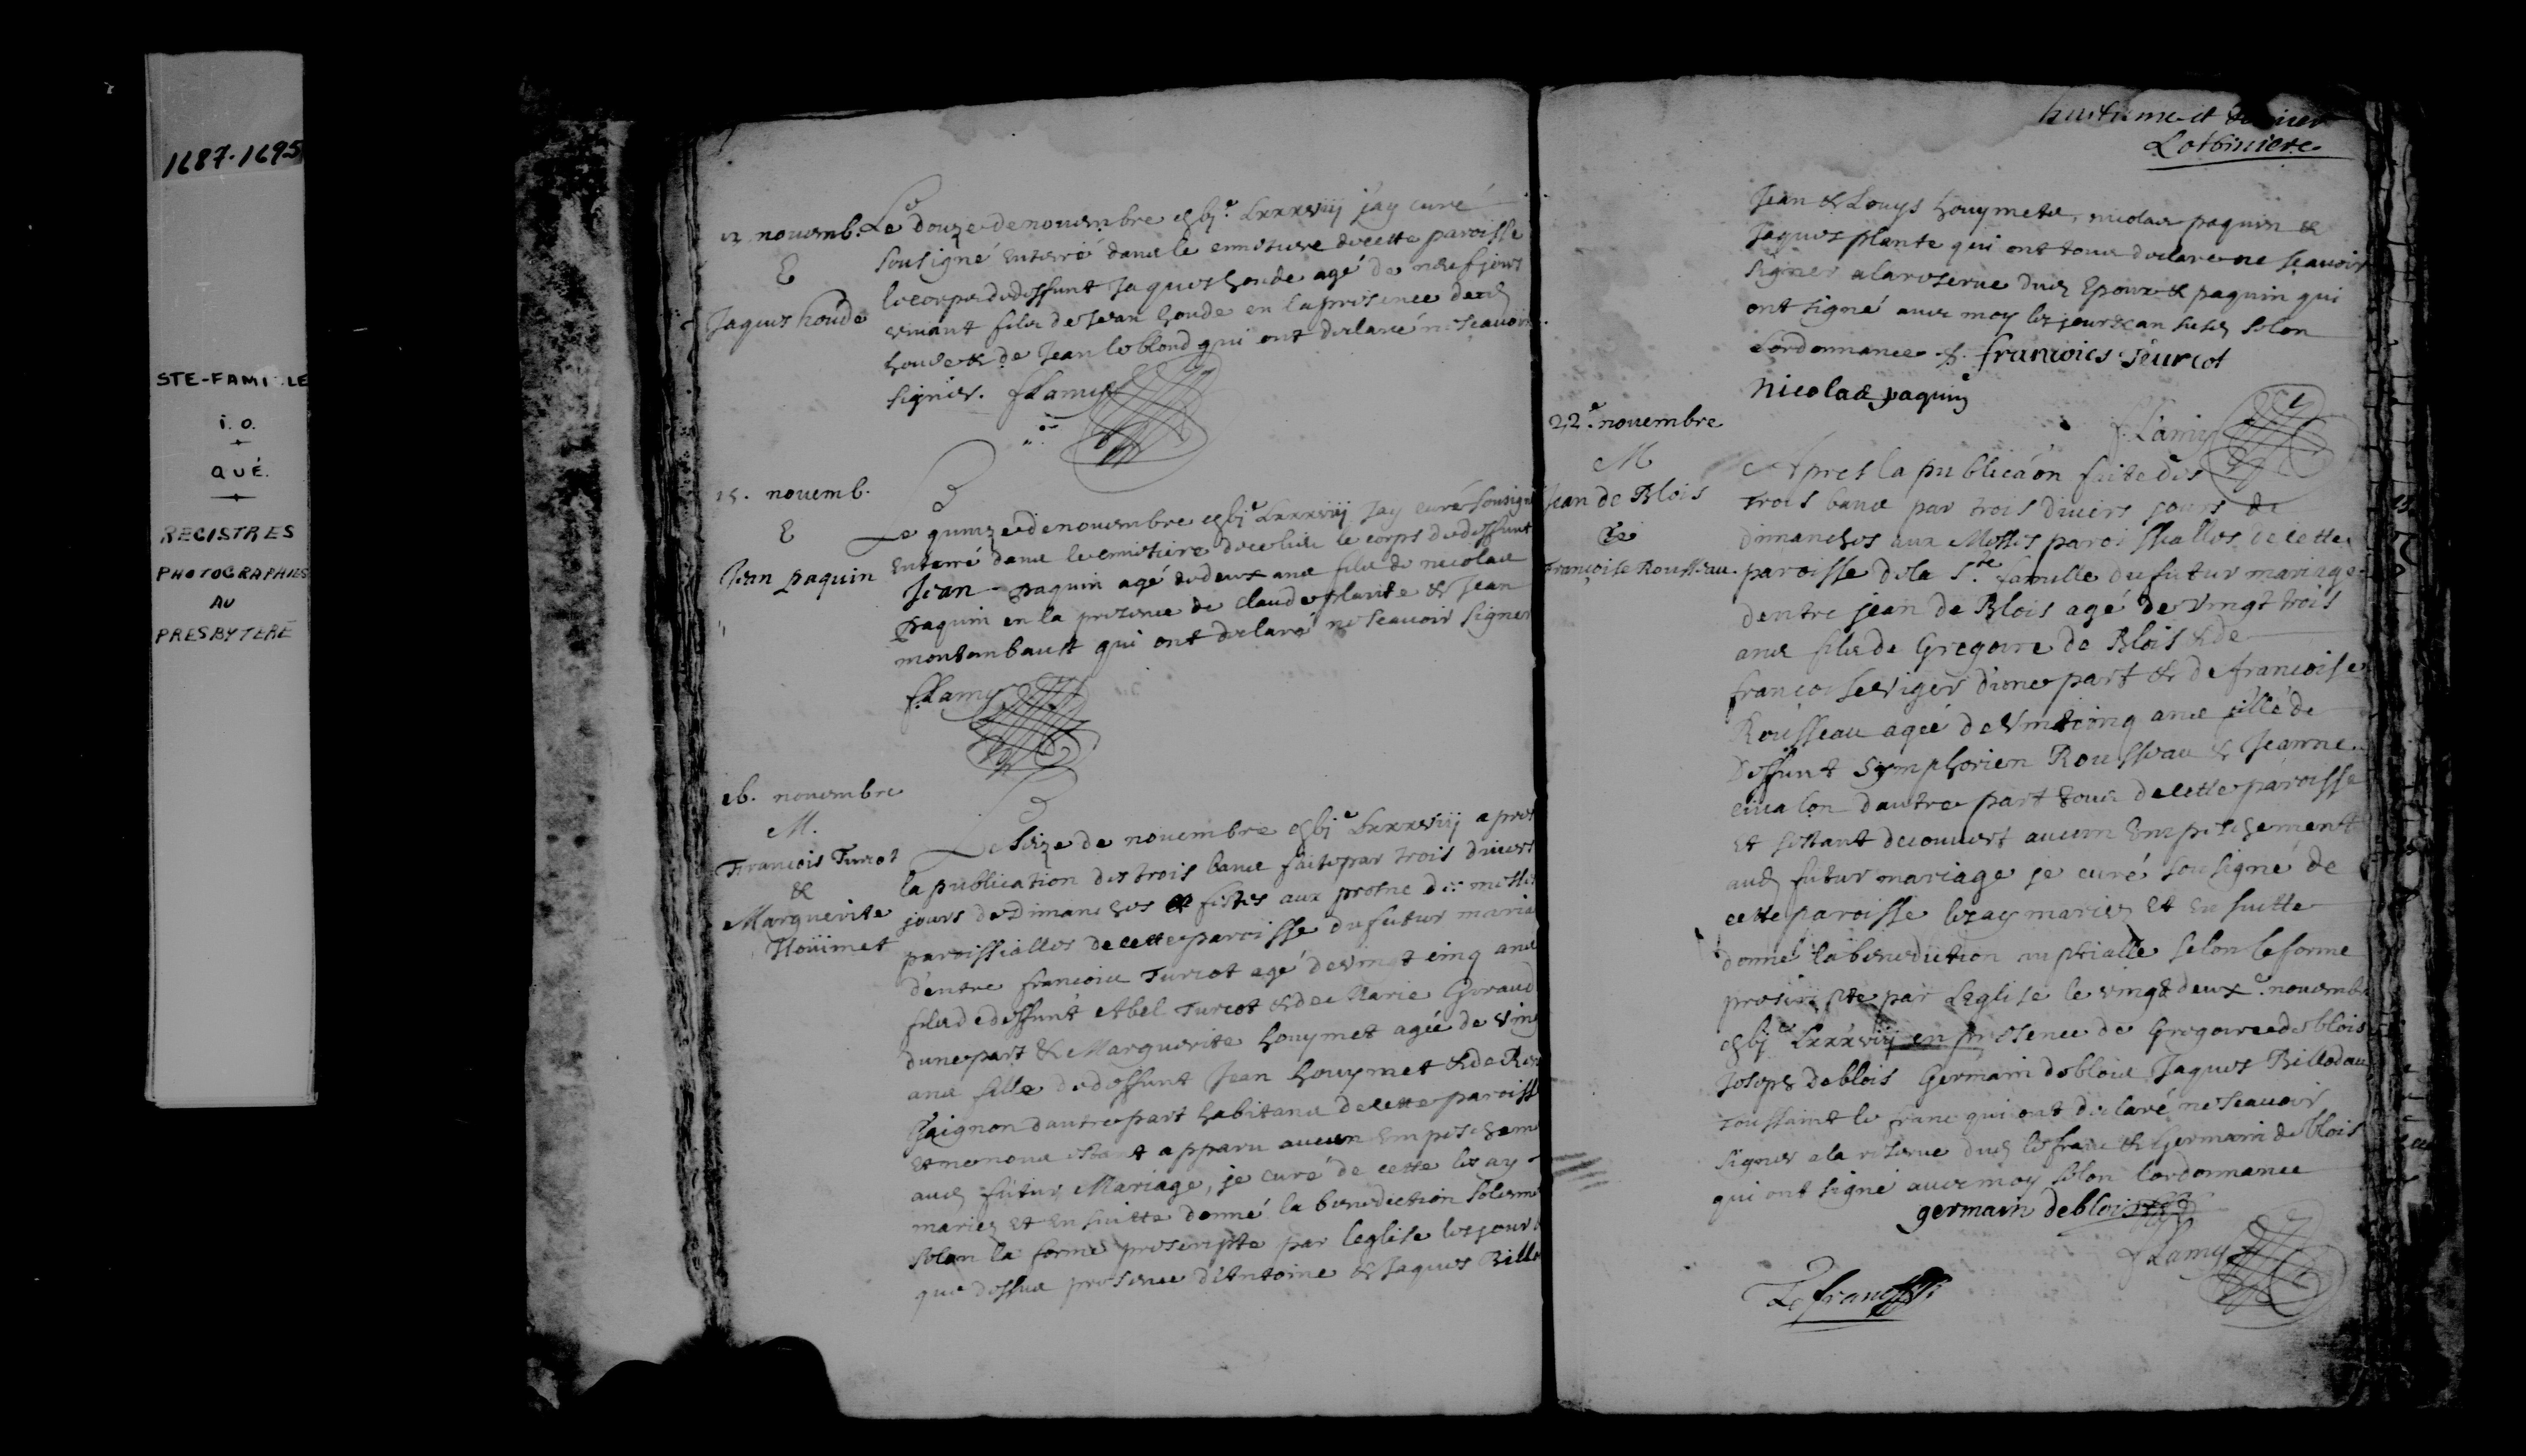 1687-1695
STE-FAMILLE
i. o.
QUÉ.
REGISTRES
PHOTOGRAPHIES
AU
PRESBYTERE
12 novemb.
E
Jaques houde
Le douze de novembre gbjc Lxxxviij jay curé
sousigné enterré dans le cimitiere de cette paroisse
le corps de deffunt Jaques houde agé de neuf jours
vivant fils de Jean houde en la presence dud
houde & de Jean leblond qui ont declaré ne scavoir
signer. fLamy
15. novemb.
E
Jean paquin
Le quinze de novembre gbjc Lxxxviij jay curé sousigné
enterré dans le cimitiere de ce lieu le corps de deffunt
Jean paquin agé de deux ans fils de nicolas
paquin en la presence de claude plante & Jean
montambault qui ont declaré ne scavoir signer
fLamy
16. novembre
M.
Francois Turcot
&
Marguerite
Hoüimet
Le seize de novembre gbjc Lxxxviij apres
la publication des trois bans faite par trois divers
jours de Dimanches & festes aux prosne des messes
paroissialles de cette paroisse du futur maria
d'entre francois Turcot agé de vingt cinq ans
fils de deffunt Abel Turcot & de Marie Giraud
dune part & Marguerite houymet agée de vin
ans fille de deffunt Jean houymet & de Ren
Gaignon dautre part habitans de cette paroiss
et ne nous estant apparu aucun empeschem
aud futur Mariage, je curé de cette les ay
mariez et ensuitte donné la benediction solemn
selon la forme prescripte par leglise les jour
que dessus presence d'Antoine & Jaques Bill
huitieme et dernier
Lotbiniere
Jean & Louys houymets, nicolas paquin &
Jaques plante qui ont tous declare ne scavoir
signer a la reserve dud Epoux & paquin qui
ont signé avec moy les jour & an susd selon
Lordonnance francoies Teurcot
nicolas paquin
f. Lamy
22e. novembre
M
Jean de Blois
&
Françoise Rousseau.
Apres la publicaon faite des
trois bans par trois divers jours de
dimanches aux Messes paroissialles de cette
paroisse de la Ste famille du futur mariage
dentre jean de Blois agé de vingt trois
ans fils de Gregoire de Blois & de
françoise viger d'une part & de francoise
Rousseau agée de vint cinq ans fille de
Deffunt Symphorien Rousseau & Jeanne
sinalon dautre part tous de cette paroisse
et sestant decouvert aucun empeschement
aud futur mariage je curé sousigné de
cette paroisse les ay mariez et ensuitte
donné la benediction nuptialle selon le forme
prescripte par L'eglise le vingt deuxe. novembr
gbjc Lxxxviij en presence de Gregoire de blois
Joseph de blois Germain deblois Jaques Billodau
Toussaint le franc qui ont declaré ne scavoir
signer a la reserve dud le franc & Germain deblois
qui ont signé avec moy selon lordonnance
germain deblois
fLamy
Le franc